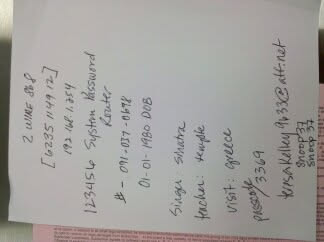 2 WIRE 868
[6235114912]
192.168.1.254
123456 System Password
Router
#- 091-037-0698
01-01-1980 DOB
Singer: sinatra
teacher: temple
visit: greece
passcode
/3369
snoop 37
snoop 37